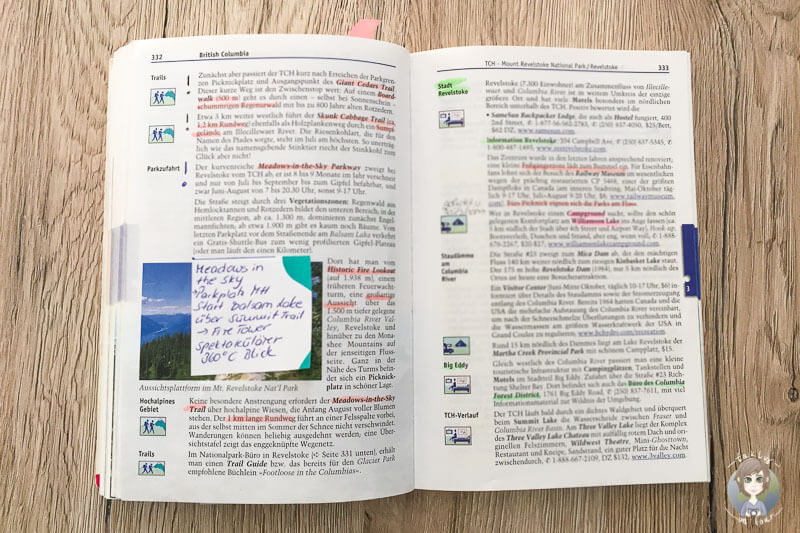 332 British Columbia
Trails
Zunächst aber passiert der TCH kurz nach Erreichen der Parkgren-
zen Picknickplatz und Ausgangspunkt des Giant Cedars Trail.
Dieser kurze Weg ist den Zwischenstop wert: Auf einem Board-
walk (500 m) geht es durch einen – selbst bei Sonnenschein –
schummrigen Regenwald mit bis zu 800 Jahre alten Rotzedern.
Etwa 3 km weiter westlich führt der Skunk Cabbage Trail (ca.
1,2 km Rundweg) ebenfalls als Holzplankenweg durch ein Sumpf-
gelände am Illecillewaet River. Die Riesenkohlart, die für den
Namen des Pfades sorgte, steht im Juli am höchsten. So unerträg-
lich wie das namensgebende Stinktier riecht der Stinkkohl zum
Glück aber nicht!
Parkzufahrt
Der kurvenreiche Meadows-in-the-Sky Parkway zweigt bei
Revelstoke vom TCH ab, er ist 8 bis 9 Monate im Jahr verschneit
und nur von Juli bis September bis zum Gipfel befahrbar, und
zwar Juni-August von 7 bis 20.30 Uhr, sonst 9-17 Uhr.
Die Straße steigt durch drei Vegetationszonen: Regenwald aus
Hemlocktannen und Rotzedern bildet den unteren Bereich, in der
mittleren Region, ab ca. 1.300 m, dominieren zunächst Engel-
mannfichten; ab etwa 1.900 m gibt es kaum noch Bäume. Vom
letzten Parkplatz vor dem Straßenende am Balsam Lake verkehrt
ein Gratis-Shuttle-Bus zum wenig profilierten Gipfel-Plateau
(oder man läuft den einen Kilometer).
Meadows in
the Sky
Parkplatz MH
Start Balsam Lake
über Summit Trail
→ Fire Tower
Spektakulärer
360°C Blick
Dort hat man vom
Historic Fire Lookout
(auf 1.938 m), einem
früheren Feuerwacht-
turm, eine großartige
Aussicht über das
1.500 m tiefer gelegene
Columbia River Val-
ley, Revelstoke und
hinüber zu den Mona-
shee Mountains auf
der jenseitigen Fluss-
seite. Ganz in der
Nähe des Turms befin-
det sich ein Picknick-
platz in schöner Lage.
Aussichtsplattform im Mt. Revelstoke Nat'l Park
Hochalpines
Gebiet
Keine besondere Anstrengung erfordert der Meadows-in-the-Sky
Trail über hochalpine Wiesen, die Anfang August voller Blumen
stehen. Der 1 km lange Rundweg führt an einer Felsspalte vorbei,
aus der selbst mitten im Sommer der Schnee nicht verschwindet.
Wanderungen können beliebig ausgedehnt werden; eine Über-
sichtstafel zeigt das enggeknüpfte Wegenetz.
Trails
Im Nationalpark-Büro in Revelstoke (➪ Seite 331 unten), erhält
man einen Trail Guide bzw. das bereits für den Glacier Park
empfohlene Büchlein »Footloose in the Columbias«.
TCH – Mount Revelstoke National Park/Revelstoke 333
Stadt
Revelstoke
Revelstoke (7.300 Einwohner) am Zusammenfluss von Illecille-
waet und Columbia River ist in weitem Umkreis der einzige
größere Ort und hat viele Motels besonders im nördlichen
Bereich unterhalb des TCH. Positiv bewertet wird die
• SameSun Backpacker Lodge, die auch als Hostel fungiert, 400
2nd Street, ✆ 1-877-562-2783, ✆ (250) 837-4050, $25/Bett,
$62 DZ, www.samesun.com.
Information Revelstoke: 204 Campbell Ave, ✆ (250) 837-5345, ✆
1-800-487-1493, www.seerevelstoke.com
Das Zentrum wurde in den letzten Jahren ansprechend renoviert;
eine kleine Fußgängerzone lädt zum Bummel ein. Für Eisenbahn-
fans lohnt sich der Besuch des Railway Museum im wesentlichen
wegen der prächtig restaurierten CP 5468, einer der größten
Dampfloks in Canada (am inneren Stadtring, Mai-Oktober täg-
lich 9-17 Uhr, Juli-August 9-20 Uhr, $8, www.railwaymuseum.
com). Fürs Picknick eignen sich die Parks am Fluss.
Wer in Revelstoke einen Campground sucht, sollte den schön
gelegenen Komfortplatz am Williamson Lake ins Auge fassen (ca.
5 km südlich der Stadt über 4th Street und Airport Way). Hook-up,
Bootsverleih, Duschen und Strand, aber eng, wenn voll, ✆ 1-888-
676-2267, $20-$27, www.williamsonlakecampground.com.
Staudämme
am
Columbia
River
Die Straße #23 zweigt zum Mica Dam ab, der den mächtigen
Fluss 140 km weiter nördlich zum riesigen Kinbasket Lake staut.
Der 175 m hohe Revelstoke Dam (1984), nur 5 km nördlich des
Orts ist heute eine Besucherattraktion.
Ein Visitor Center (Juni-Mitte Oktober, täglich 10-17 Uhr, $6) in-
formiert über Details des Staudamms sowie der Stromerzeugung
entlang des Columbia River. Bereits 1964 hatten Canada und die
USA die mehrfache Aufstauung des Columbia River vereinbart,
um nach der Schneeschmelze Überflutungen zu verhindern und
die Wassermassen am größten Wasserkraftwerk der USA in
Grand Coulee zu regulieren. www.bchydro.com/recreation.
Rund 15 km nördlich des Dammes liegt am Lake Revelstoke der
Martha Creek Provincial Park mit schönem Campground, $15.
Big Eddy
Gleich westlich des Columbia River passiert man eine kleine
touristische Infrastruktur mit Campingplätzen, Tankstellen und
Motels im Stadtteil Big Eddy. Zufahrt über die Straße #23 Rich-
tung Shelter Bay. Dort befindet sich auch das Büro des Columbia
Forest District, 1761 Big Eddy Road, ✆ (250) 837-7611, mit viel
Informationsmaterial zur Wildnis der Umgebung.
TCH-Verlauf
Der TCH läuft bald durch ein dichtes Waldgebiet und überquert
beim Summit Lake die Wasserscheide zwischen Fraser und
Columbia River Basin. Am Three Valley Lake liegt der Komplex
des Three Valley Lake Chateau mit auffällig rotem Dach und ori-
ginellen Felszimmern, Wildwest Theatre, Mini-Ghosttown,
Restaurant und Kneipe, Sandstrand, ein guter Platz für die Nacht
zwischendurch, ✆ 1-888-667-2109, DZ $132, www.3valley.com.
3